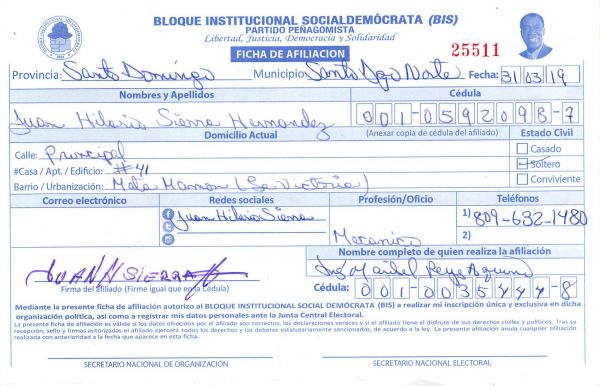 BLOQUE INSTITUCIONAL SOCIALDEMÓCRATA (BIS)
PARTIDO PEÑAGOMISTA
Libertad, Justicia, Democracia y Solidaridad
FICHA DE AFILIACION
25511
Provincia: Santo Domingo Municipio: Santo Dgo Norte Fecha: 31 03 19
Nombres y Apellidos Cédula
Juan Hilario Sierra Hernandez 001-0592098-7
Domicilio Actual (Anexar copia de cédula del afiliado) Estado Civil
Calle: Principal Casado
#Casa / Apt. / Edificio: #41 Soltero
Barrio / Urbanización: Mata Mamon (La Victoria) Conviviente
Correo electrónico Redes sociales Profesión/Oficio Teléfonos
Juan Hilario Sierra 1) 809-632-1480
Mecanico 2)
Nombre completo de quien realiza la afiliación
JUAN H SIERRA
Firma del afiliado (Firme igual que en la Cédula) Cédula: 001-0035444-8
Mediante la presente ficha de afiliación autorizo al BLOQUE INSTITUCIONAL SOCIAL DEMÓCRATA (BIS) a realizar mi inscripción única y exclusiva en dicha
organización política, así como a registrar mis datos personales ante la Junta Central Electoral.
La presente ficha de afiliación es válida si los datos ofrecidos por el afiliado son correctos, las declaraciones veraces y si el afiliado tiene el disfrute de sus derechos civiles y políticos. Tras su
recepción, sello y firmas autorizadas el afiliado ejercerá todos los derechos y los deberes estatutariamente sancionados, de acuerdo a la ley. La presente afiliación anula cualquier afiliación
realizada con anterioridad a la fecha que aparece en esta ficha.
SECRETARIO NACIONAL DE ORGANIZACIÓN SECRETARIO NACIONAL ELECTORAL